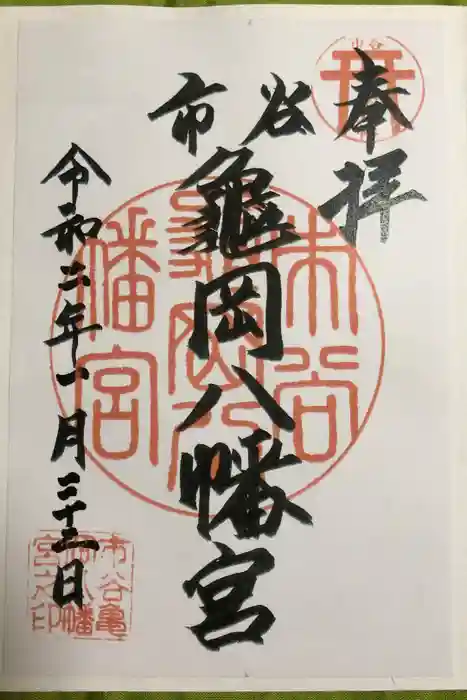 奉拝
市谷
市谷
龜岡八幡宮
令和二年一月二十三日
市谷
亀岡八
幡宮
市谷亀
岡八幡
宮之印